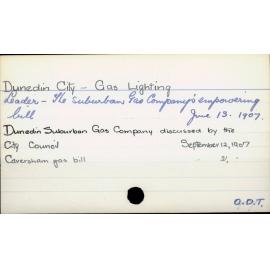 Dunedin City - Gas Lighting
Leader - The Suburban Gas Company's empowering
bill June 13. 1907.
Dunedin Suburban Gas Company discussed by the
City Council September 12, 1907
Caversham gas bill
O.D.T.